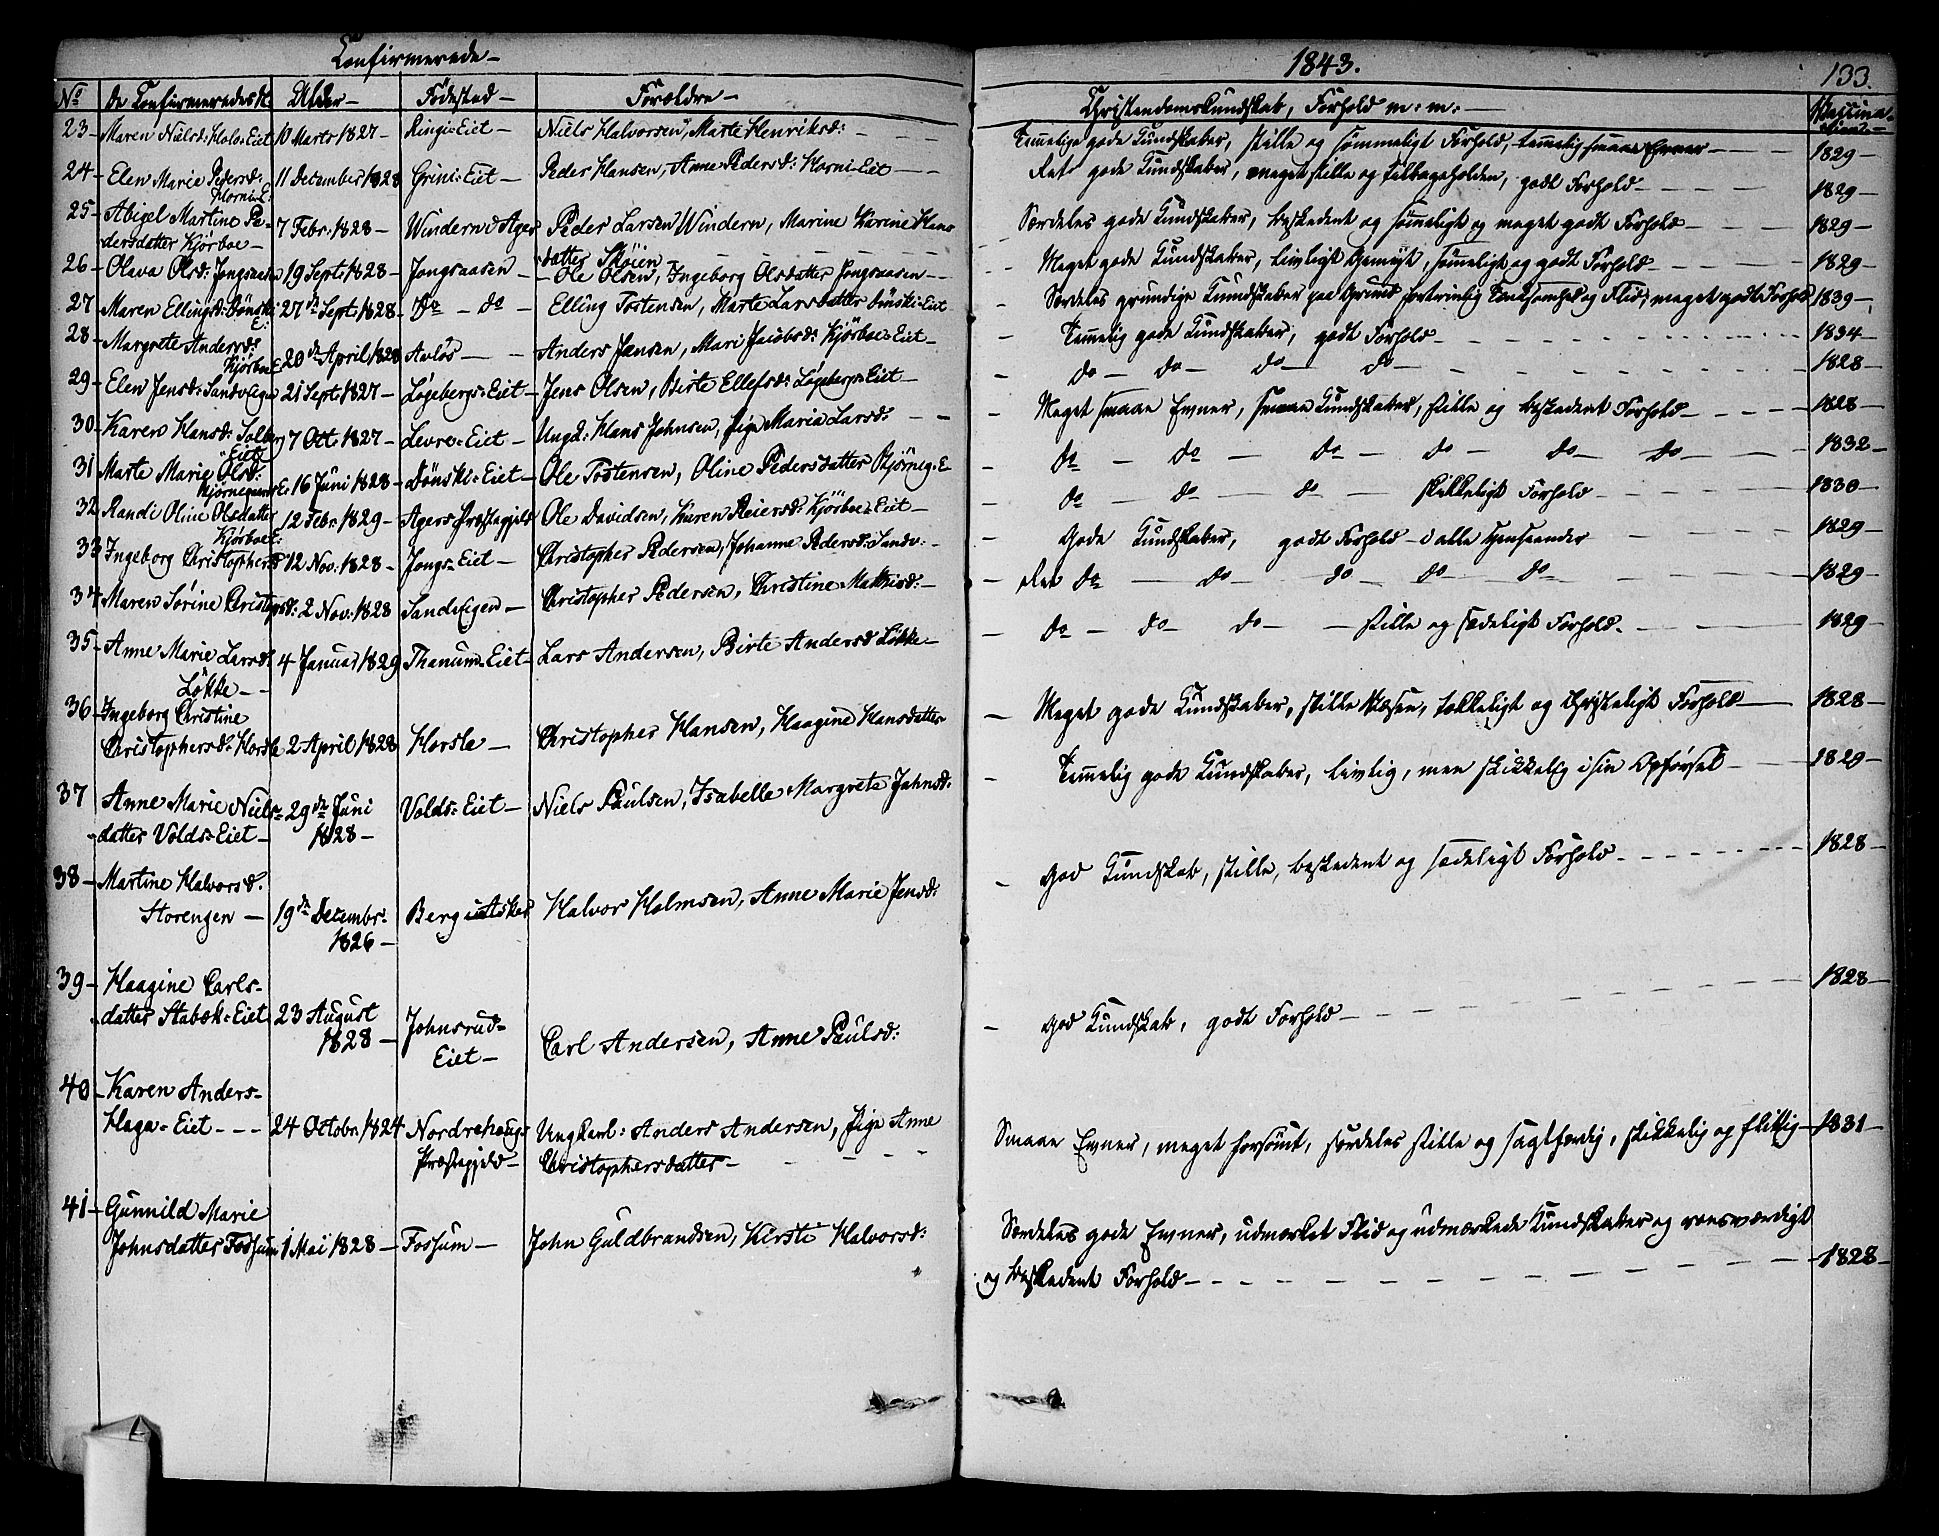 Confirmerede –
No
De Confirmeredes N:
Alder –
Fødested –
Forældre –
23 –
Maren Nielsd: Halv: Eiet
10 Marts 1827 –
Ringi=Eiet –
Niels Halvorsen, Marte Henriksd: –
24 –
Elen Marie Pedersd:
Horni=E:
11 December 1828
Grini=Eiet –
Peder Hansen, Anne Pedersd: Horni=Eiet –
25 –
Abigel Martine Pe-
dersdatter Kjörboe –
7 Febr: 1828 –
Windern i Ager
Peder Larsen Windern, Marine Karine Hans
datter Sköien –
26 –
Olava Olsd: Jongsaasen
19 Sept: 1828 –
Jongsaasen –
Ole Olsen, Ingeborg Olsdatter Jongsaasen –
27
Maren Ellingsd: Dönski
E:
27de Sept: 1828 –
do – do –
Elling Tostensen, Marte Larsdatter Dönski=Eiet
28 –
Margrete Andersd:
Kjörboe E:
20de April 1828
Avlös –
Anders Jensen, Mari Jacobsd: Kjörboe=Eiet –
29 –
Elen Jensd: Sandvigen
21 Sept: 1827 –
Lögebergs=Eiet –
Jens Olsen, Birte Ellefsd: Lögebergs=Eiet –
30 –
Karen Hansd: Solberg
Eiet
7 Oct: 1827 –
Levre=Eiet –
Ungk: Hans Johnsen, Pige Maria Larsd: –
31
Marte Marie Olsd:
Bjørnegaards E:
16 Juni 1828 –
Dönski=Eiet –
Ole Tostensen, Oline Pedersdatter Bjørneg: E
32
Randi Oline Olsdatter
Kjörboe E:
12 Febr: 1829 –
Agers Præstegjeld
Ole Davidsen, Karen Reiersd: Kjörboe=Eiet –
33
Ingeborg Christophersd:
12 Nov: 1828 –
Jongs=Eiet –
Christopher Pedersen, Johanne Pedersd: Sandv: –
34 –
Maren Sørine Christophd:
2 Nov: 1828
Sandvigen –
Christopher Pedersen, Christine Mathisd: –
35 –
Anne Marie Larsd:
Lökke –
4 Januar 1829
Thanum=Eiet –
Lars Andersen, Birte Andersd Lökke –
36 –
Ingeborg Christine
Christophersd: Horsle
2 April 1828
Horsle –
Christopher Hansen, Haagine Hansdatter
37
Anne Marie Niels=
datter Volds=Eiet –
29de Juni
1828 –
Volds=Eiet –
Niels Paulsen, Isabelle Margrete Jahnsd:
38 –
Martine Halvorsd.
Storengen –
19de Decembr.
1826 –
Berg i Asker
Halvor Holmsen, Anne Marie Jensd:
39 –
Haagine Carls-
datter Stabæk=Eiet
23 August
1828 –
Johnsrud=
Eiet –
Carl Andersen, Anne Paulsd:
40 –
Karen Anders-
Haga=Eiet –
24 Octobr. 1824
Nordrehougs
Præstegjeld –
Ungkarl: Anders Andersen, Pige Anne
Christophersdatter –
41 –
Gunnild Marie
Johnsdatter Fossum
1 Mai 1828 –
Fossum –
John Guldbrandsen, Kirsti Halvorsd:
1843.
133.
Christendomskundskab, Forhold m: m: –
Vaccina-
tion –
Temmelige gode Kundskaber, stille og sømmeligt Forhold, temmelig smaae Evner –
1829 –
Ret gode Kundskaber, meget stille og tilbageholden, godt Forhold –
1829 –
Særdeles gode Kundskaber, beskedent og sømmeligt og meget godt Forhold –
1829 –
Meget gode Kundskaber, livligt Gemyt, sømmeligt og godt Forhold –
1829 –
Særdeles grundige Kundskaber fortrinlig Tænksomhed og Flid, meget godt Forhold
1839 –
Temmelig gode Kundskaber, godt Forhold –
1834 –
do – do – do – do –
1828 –
Meget smaae Evner, smaae Kundskaber, stille og beskedent Forhold –
1828 –
do – do – do – do – do – do –
1832 –
do – do – do – skikkeligt Forhold –
1830 –
Gode Kundskaber, godt Forhold – i alle Henseender
1829 –
Ret do – do – do – do – do –
1829 –
do – do – do – stille og sædeligt Forhold –
1829 –
Meget gode Kundskaber, stille Væsen, tækkeligt og christeligt Forhold –
1828 –
Temmelig gode Kundskaber, livlig, men skikkelig i sin Opførsel –
1829 –
God Kundskab, stille, beskedent og sædeligt Forhold –
1828 –
God Kundskab, godt Forhold –
1828 –
Smaae Evner, meget forsømt, særdeles stille og sagtfærdig, skikkelig og flittig –
1831 –
Særdeles gode Evner, udmærket Flid og udmærkede Kundskaber og roesværdigt
og beskedent Forhold –
1828 –